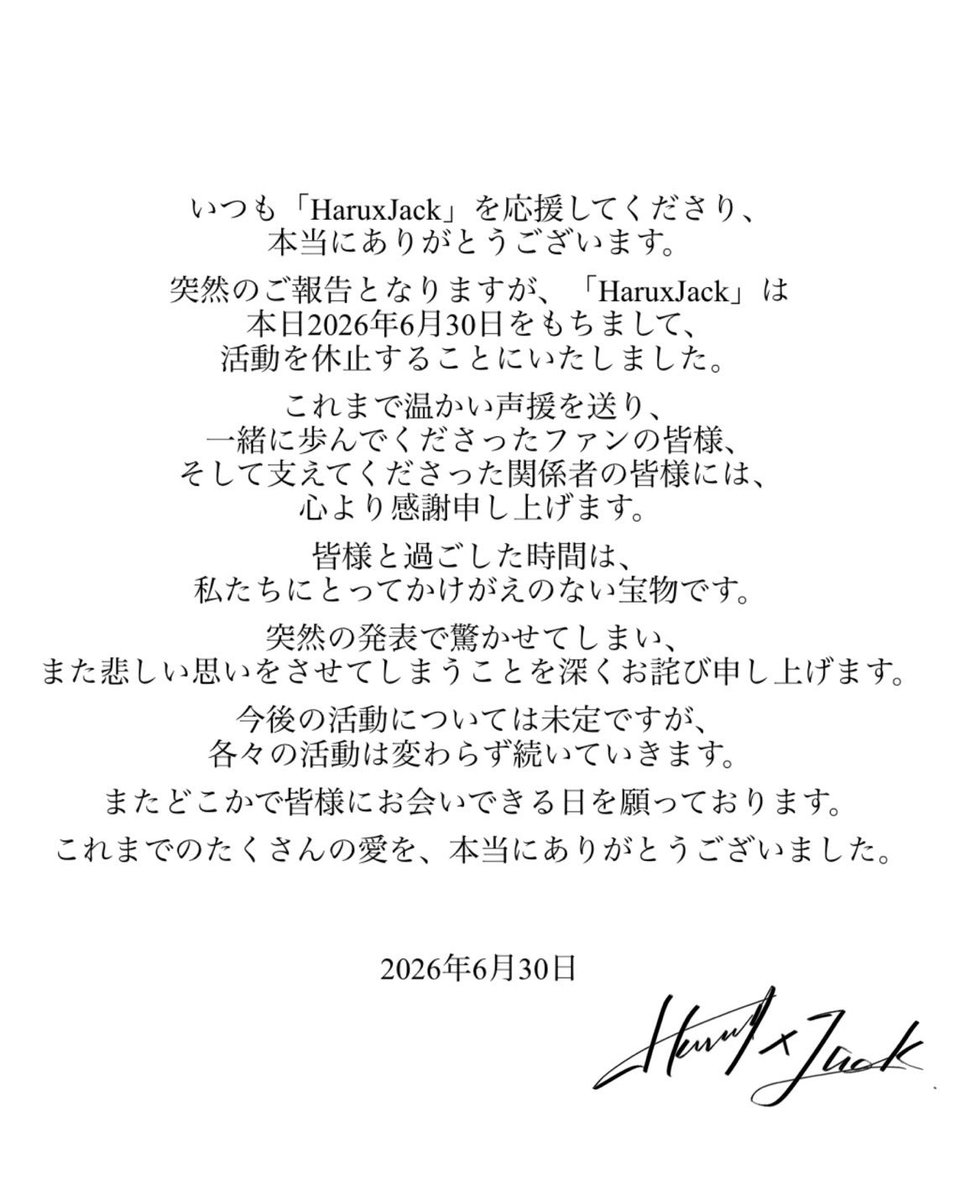 いつも「HaruxJack」を応援してくださり、
本当にありがとうございます。
突然のご報告となりますが、「HaruxJack」は
本日2026年6月30日をもちまして、
活動を休止することにいたしました。
これまで温かい声援を送り、
一緒に歩んでくださったファンの皆様、
そして支えてくださった関係者の皆様には、
心より感謝申し上げます。
皆様と過ごした時間は、
私たちにとってかけがえのない宝物です。
突然の発表で驚かせてしまい、
また悲しい思いをさせてしまうことを深くお詫び申し上げます。
今後の活動については未定ですが、
各々の活動は変わらず続いていきます。
またどこかで皆様にお会いできる日を願っております。
これまでのたくさんの愛を、本当にありがとうございました。
2026年6月30日
Haru x Jack